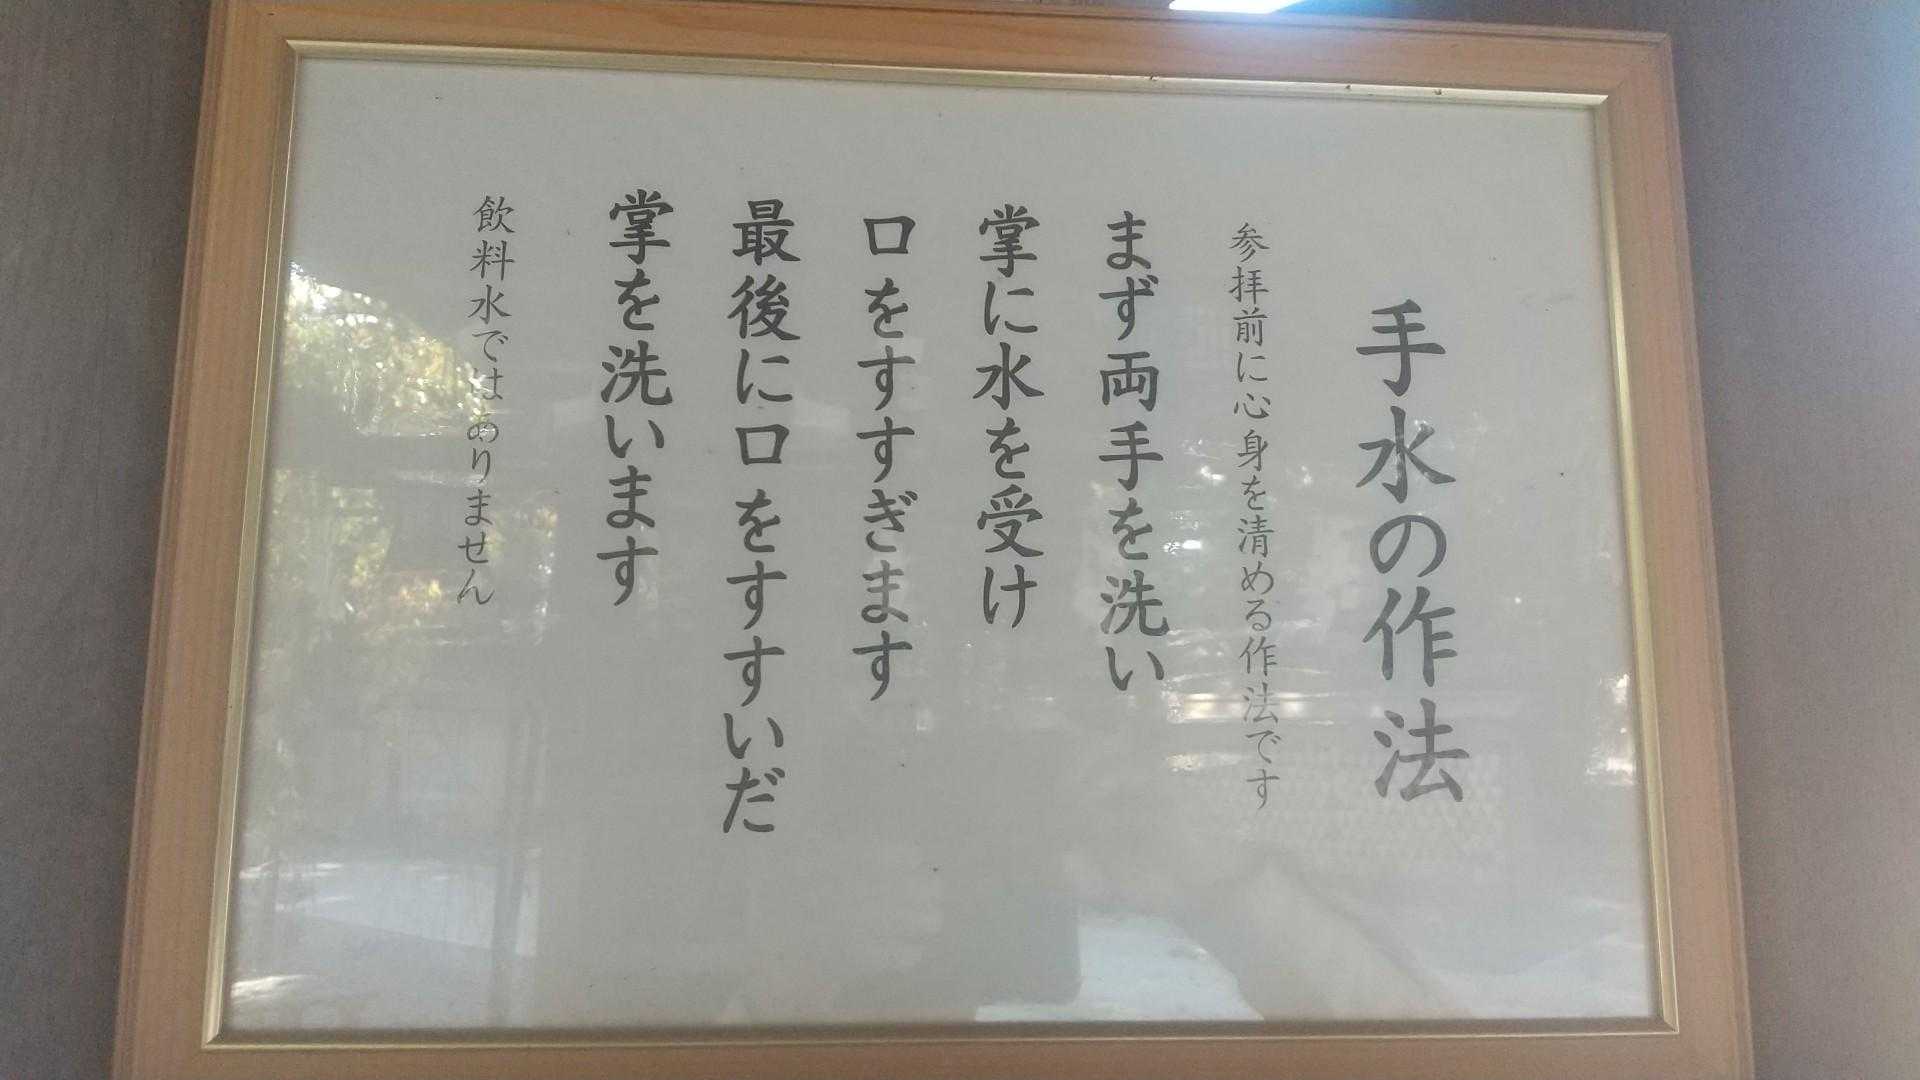 手水の作法
参拝前に心身を清める作法です
まず両手を洗い
掌に水を受け
口をすすぎます
最後に口をすすいだ
掌を洗います
飲料水ではありません